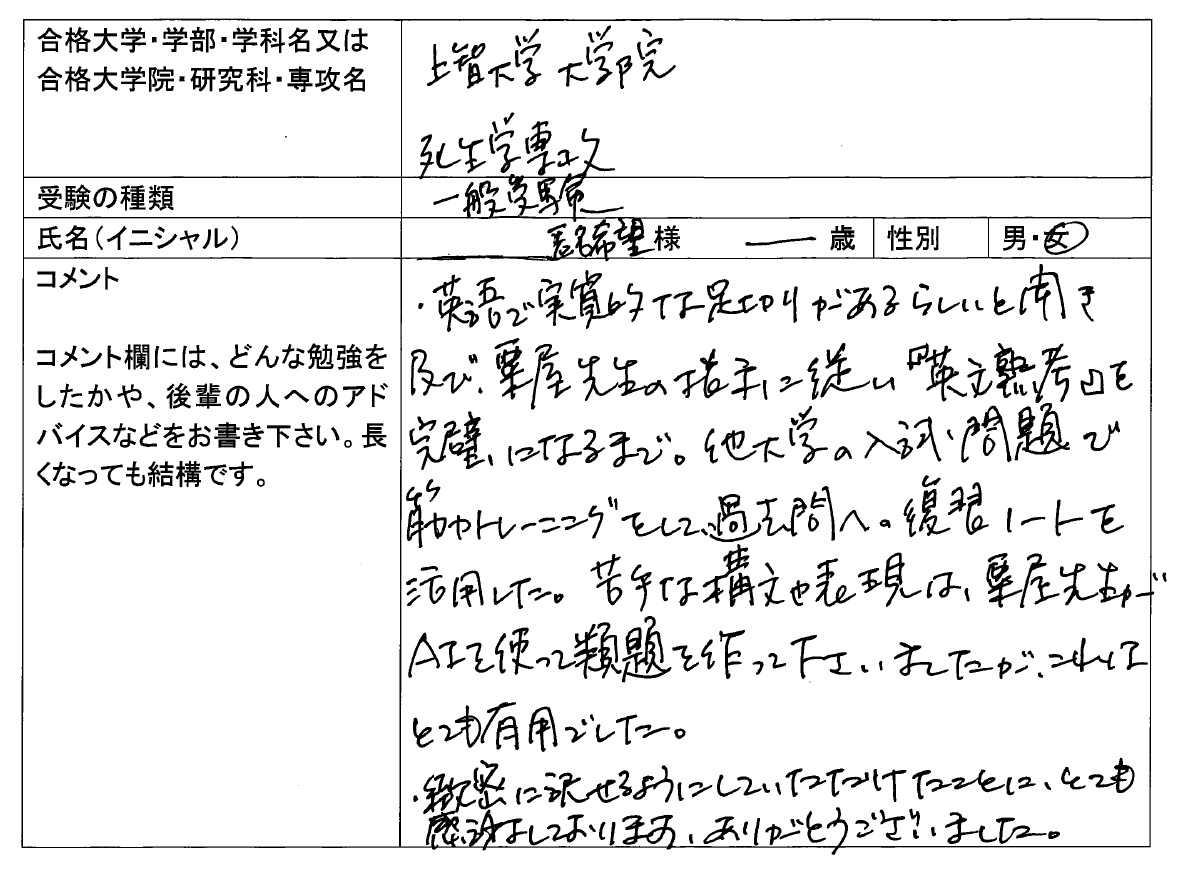 合格大学・学部・学科名又は
合格大学院・研究科・専攻名
上智大学 大学院
死生学専攻
受験の種類
一般受験
氏名(イニシャル)
匿名希望様 ― 歳 性別 男・女
コメント
コメント欄には、どんな勉強を
したかや、後輩の人へのアド
バイスなどをお書き下さい。長
くなっても結構です。
・英語で実質的な足切りがあるらしいと聞き
及び、粟屋先生の指示に従い『英文熟考』を
完璧になるまで。他大学の入試問題で
筋力トレーニングをして、過去問へ。復習ノートを
活用した。苦手な構文や表現は、粟屋先生が
AIを使って類題を作って下さいましたが、これは
とても有用でした。
・緻密に訳せるようにしていただけたことに、とても
感謝しております、ありがとうございました。